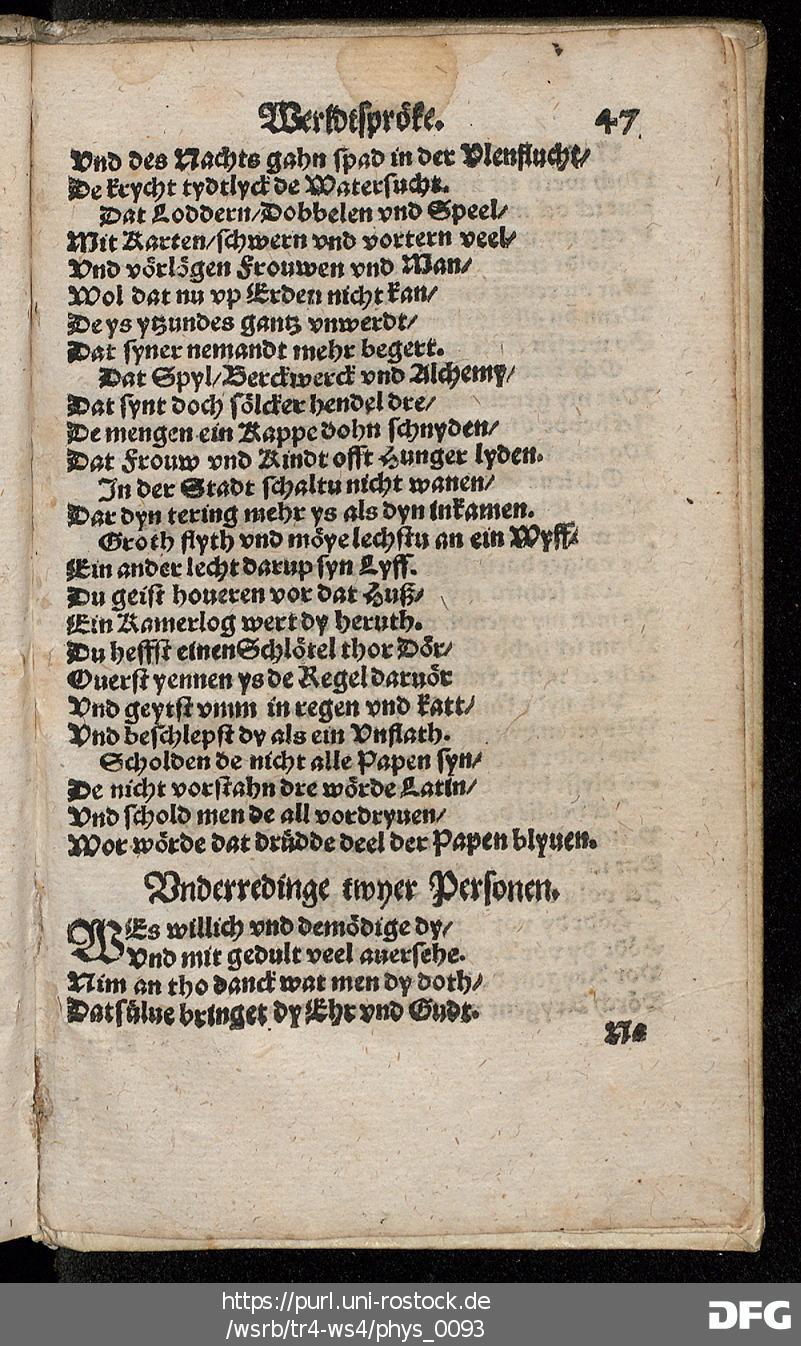 Werldtspröke. 47
Vnd des Nachts gahn spad in der Vlenflucht/
De krycht tydtlyck de Watersucht.
Dat Loddern/Dobbelen vnd Speel/
Mit Karten/schwern vnd vortern veel/
Vnd vörlögen Frouwen vnd Man/
Wol dat nu vp Erden nicht kan/
De ys ytzundes gantz vnwerdt/
Dat syner nemandt mehr begert.
Dat Spyl/Berckwerck vnd Alchemy/
Dat synt doch sölcker hendel dre/
De mengen ein Kappe dohn schnyden/
Dat Frouw vnd Kindt offt Hunger lyden.
In der Stadt schaltu nicht wanen/
Dar dyn tering mehr ys als dyn inkamen.
Groth flyth vnd möye lechstu an ein Wyff/
Ein ander lecht darup syn Lyff.
Du geist houeren vor dat Huß/
Ein Kamerlog wert dy heruth.
Du heffst einen Schlötel thor Dör/
Ouerst yennen ys de Regel daruör
Vnd geytst vmm in regen vnd katt/
Vnd beschlepst dy als ein Vnflath.
Scholden de nicht alle Papen syn/
De nicht vorstahn dre wörde Latin/
Vnd schold men de all vordryuen/
Wor wörde dat drüdde deel der Papen blyuen.
Vnderredinge twyer Personen.
WEs willich vnd demödige dy/
Vnd mit gedult veel auersehe.
Nim an tho danck wat men dy doth/
Datsülue bringet dy Ehr vnd Gudt.
Ne
https://purl.uni-rostock.de
/wsrb/tr4-ws4/phys_0093
DFG